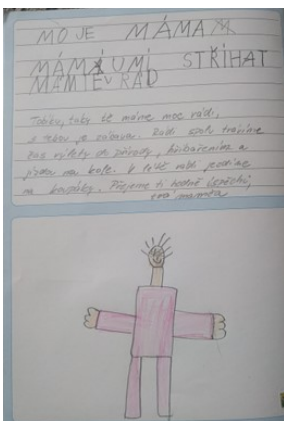 MOJE MÁMA
MÁMA UMÍ STŘÍHAT
MÁMTĚ RÁD
Tobíku, taky tě máme moc rádi,
s tebou je zábava. Rádi spolu trávíme
čas výlety do přírody, houbařením a
jízdou na kole. V létě rádi jezdíme
na koupáky. Přejeme ti hodně úspěchů,
tvá mamka